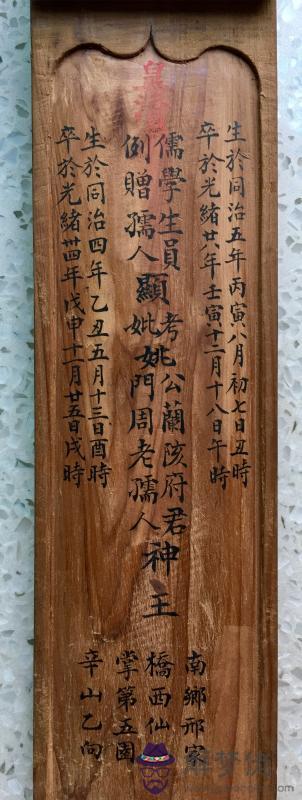 皇清
生於同治五年丙寅八月初七日丑時
卒於光緒廿八年壬寅十二月十八日午時
儒學生員
例贈孺人
顯
考
妣
姚
公蘭陔府君
門周老孺人
神主
生於同治四年乙丑五月十三日酉時
卒於光緒卌四年戊申十二月廿五日戌時
南鄉邢家
橋西仙
掌第五圖
辛山乙向